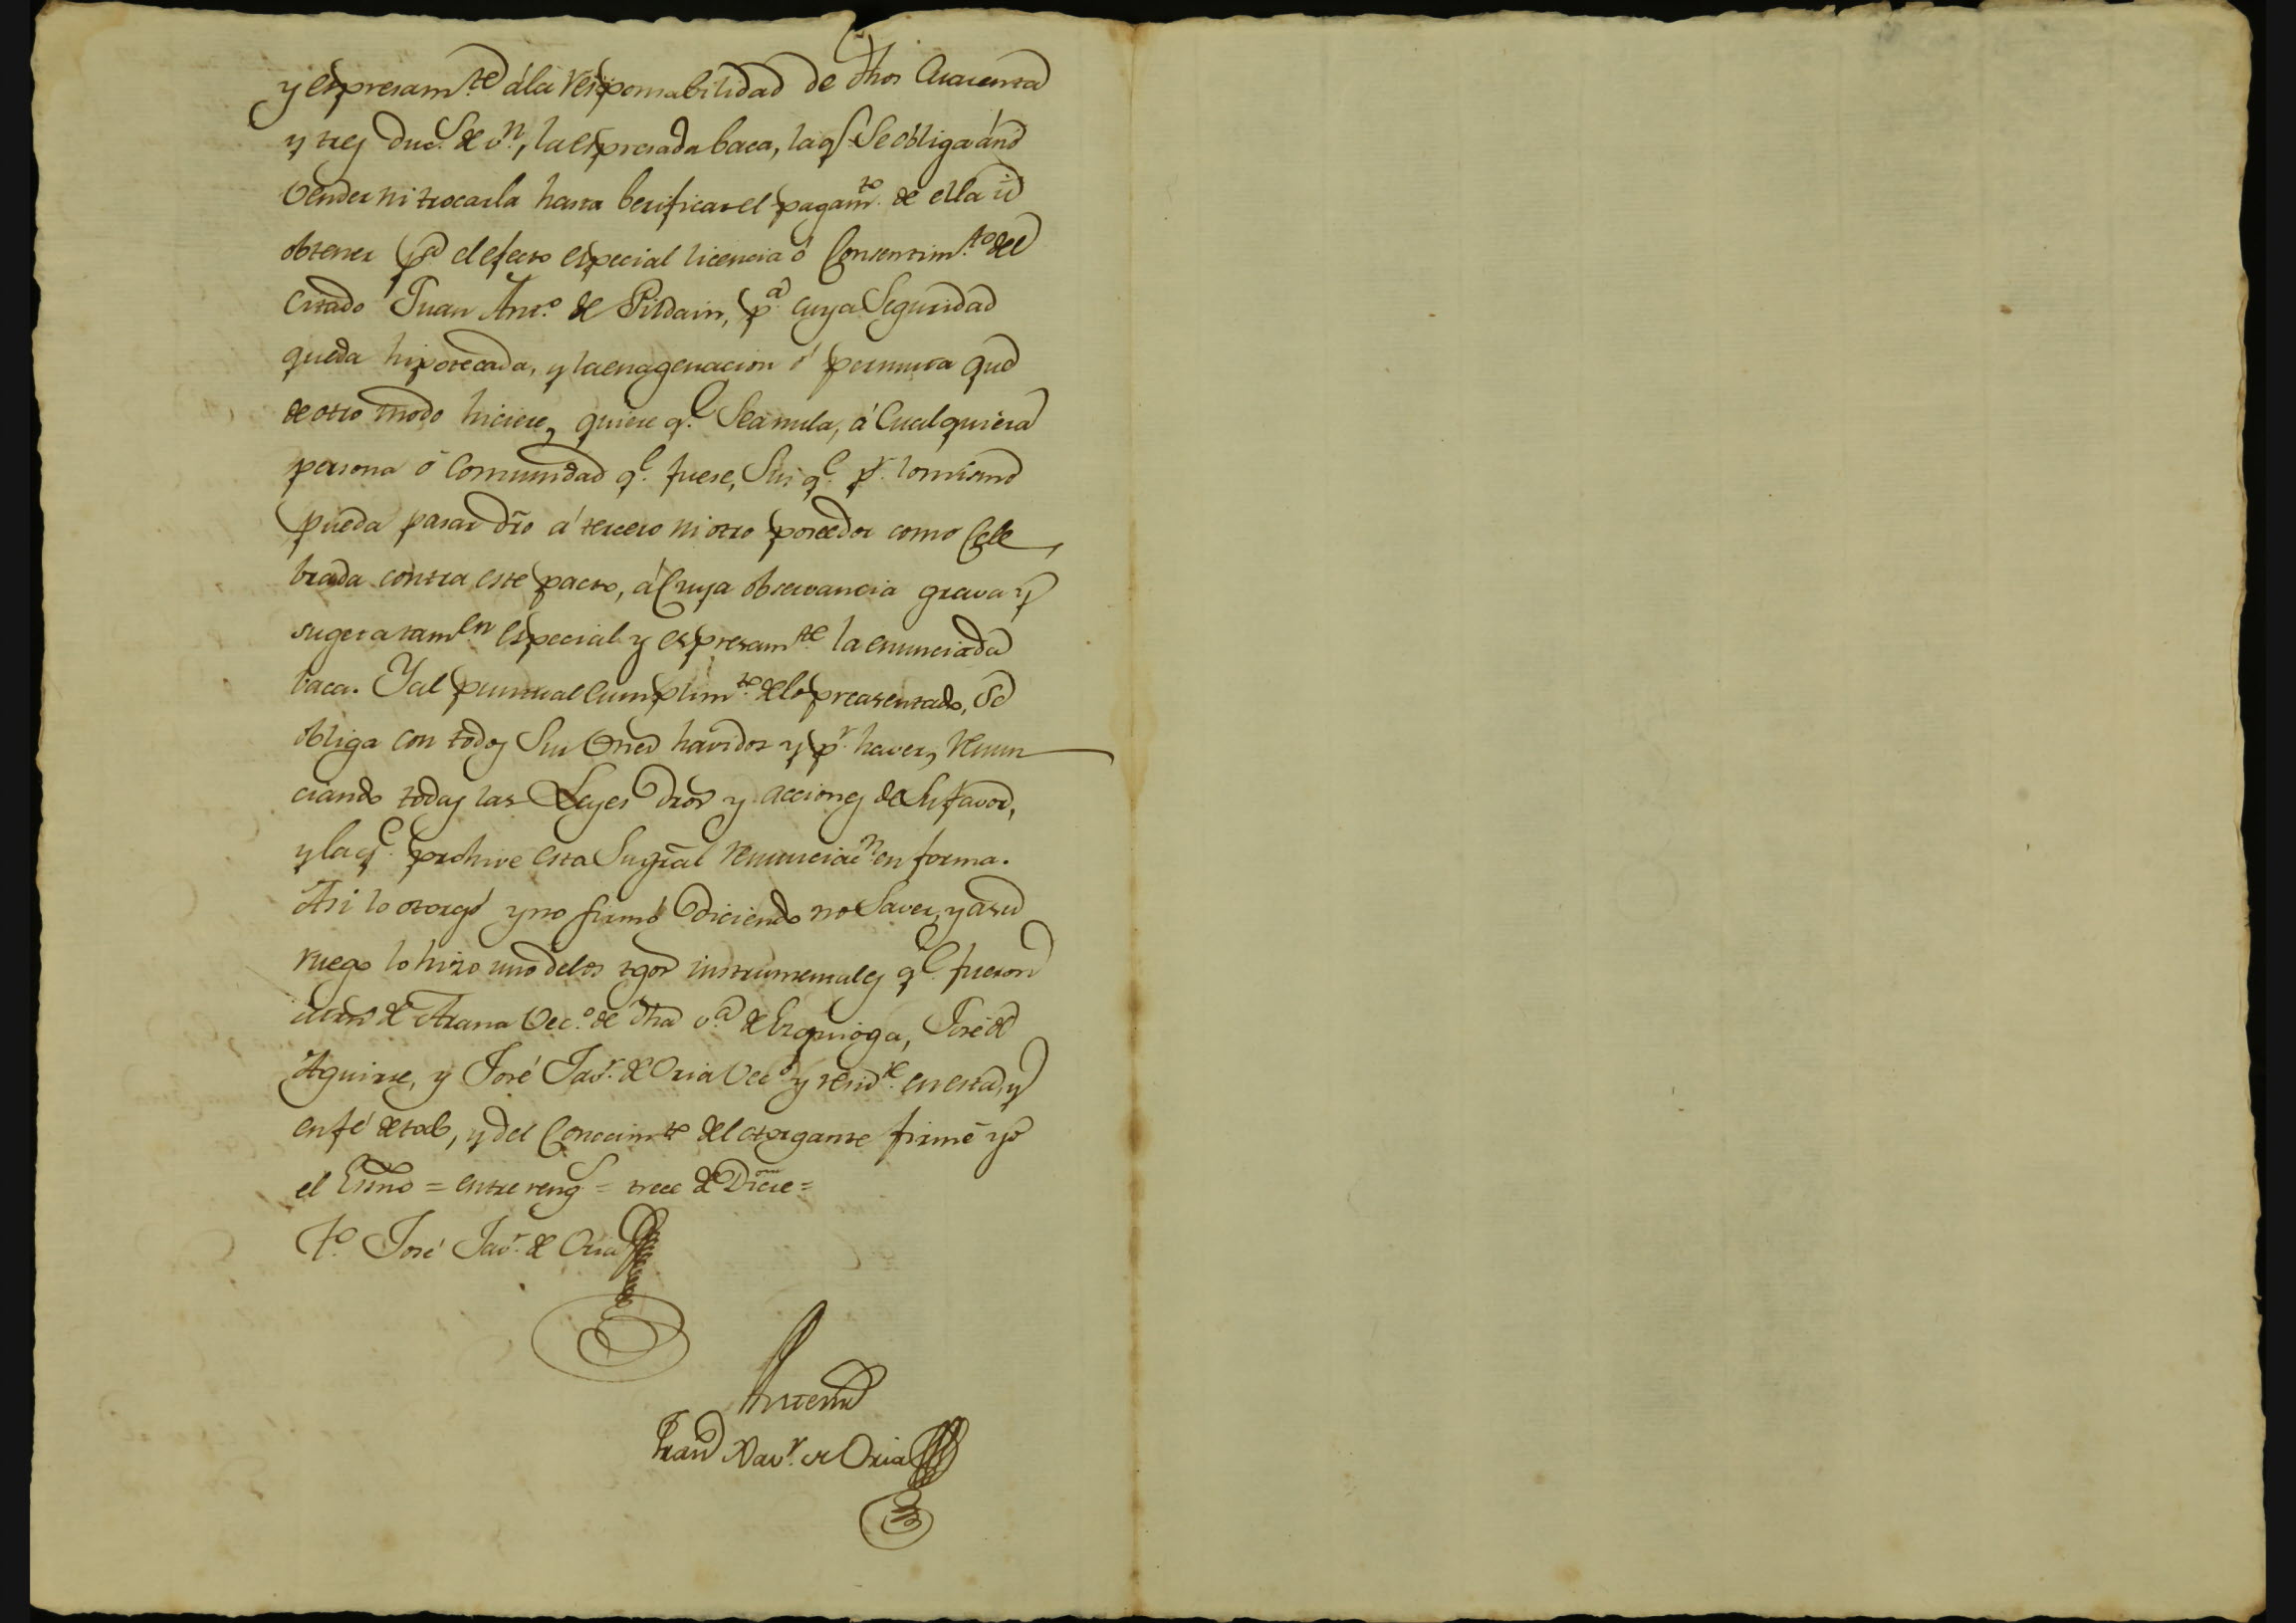 y espresam.te á la responsabilidad de dhos Cuarenta
y tres duc.s de v.n, la espresada baca, la q.e Se obliga á no
vender ni trocarla hasta berificar el pagam.to de ella ú
obtener p.a el efecto especial licencia ó Consentim.to del
Citado Juan Ant.o de Pildain, p.a cuya Seguridad
queda hipotecada, y la enagenacion ó permuta que
de otro modo hiciere, quiere q.e Sea nula, á Cualquiera
persona ó Comunidad q.e fuese, Sin q.e p.r lo mismo
pueda pasar dro á tercero ni otro poseedor como Cele
brada contra este pacto, á Cuya observancia grava y
sugeta tam.en especial y espresam.te la enunciada
baca. Y al puntual Cumplim.to de lo preasentado, Se
obliga con todos Sus vnes havidos y p.r haver, renun
ciando todas las Leyes dros y acciones de Su favor,
y la q.e prohive esta Su gral renunciac.n en forma.
Asi lo otorgó y no firmó diciendo no Saver, y a su
ruego lo hizo uno de los tgos instrumentales q.e fueron
de Arana Vec.o de dha v.a de Ezquioga, José de
Aguirre, y José Jav.r de Oria Vec.s y resid.te en esta, y
en fé de todo, y del Conocim.to del otorgante firmé yo
el Essno = entre reng.s = trece de Dicre =
T.o José Jav.r de Oria
Antemi
Fran.co Xav.r de Oria